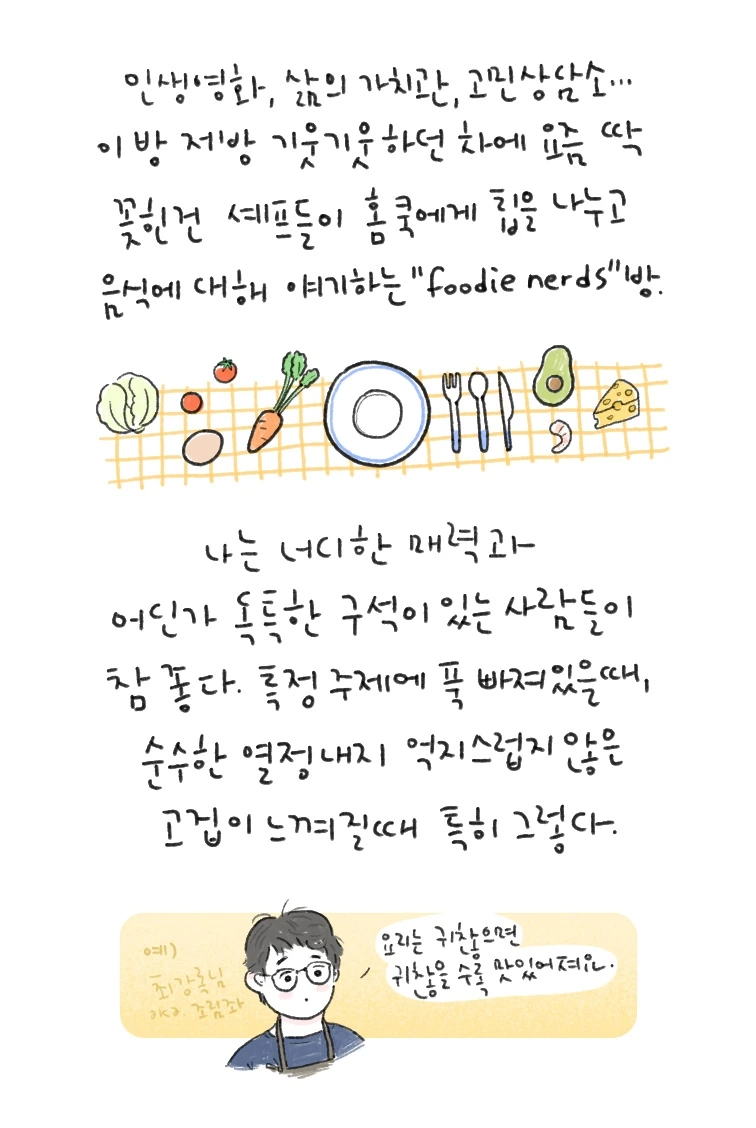 인생영화, 삶의 가치관, 고민상담소...
이 방 저방 기웃기웃하던 차에 요즘 딱
꽂힌건 셰프들이 홈쿡에게 팁을 나누고
음식에 대해 얘기하는 "foodie nerds"방.
나는 너디한 매력과
어딘가 독특한 구석이 있는 사람들이
참 좋다. 특정 주제에 푹 빠져있을때,
순수한 열정내지 억지스럽지 않은
고집이 느껴질때 특히 그렇다.
예)
최강록님
aka. 조림좌
요리는 귀찮으면
귀찮을 수록 맛있어져요.